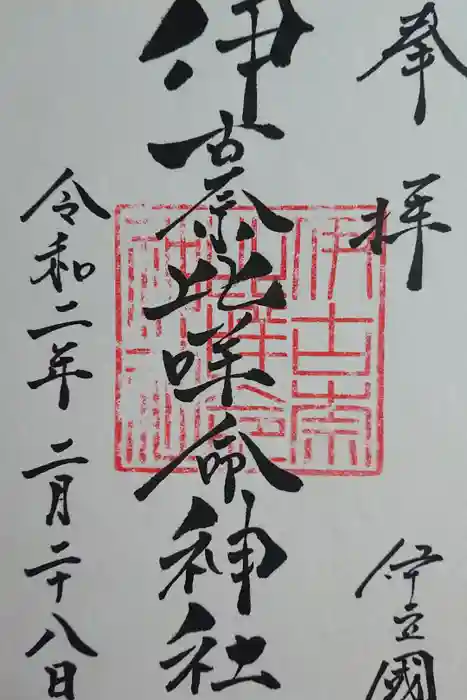 奉拝
伊豆國
伊古奈比咩命神社
令和二年 二月二十八日
伊古奈
比咩命
神社